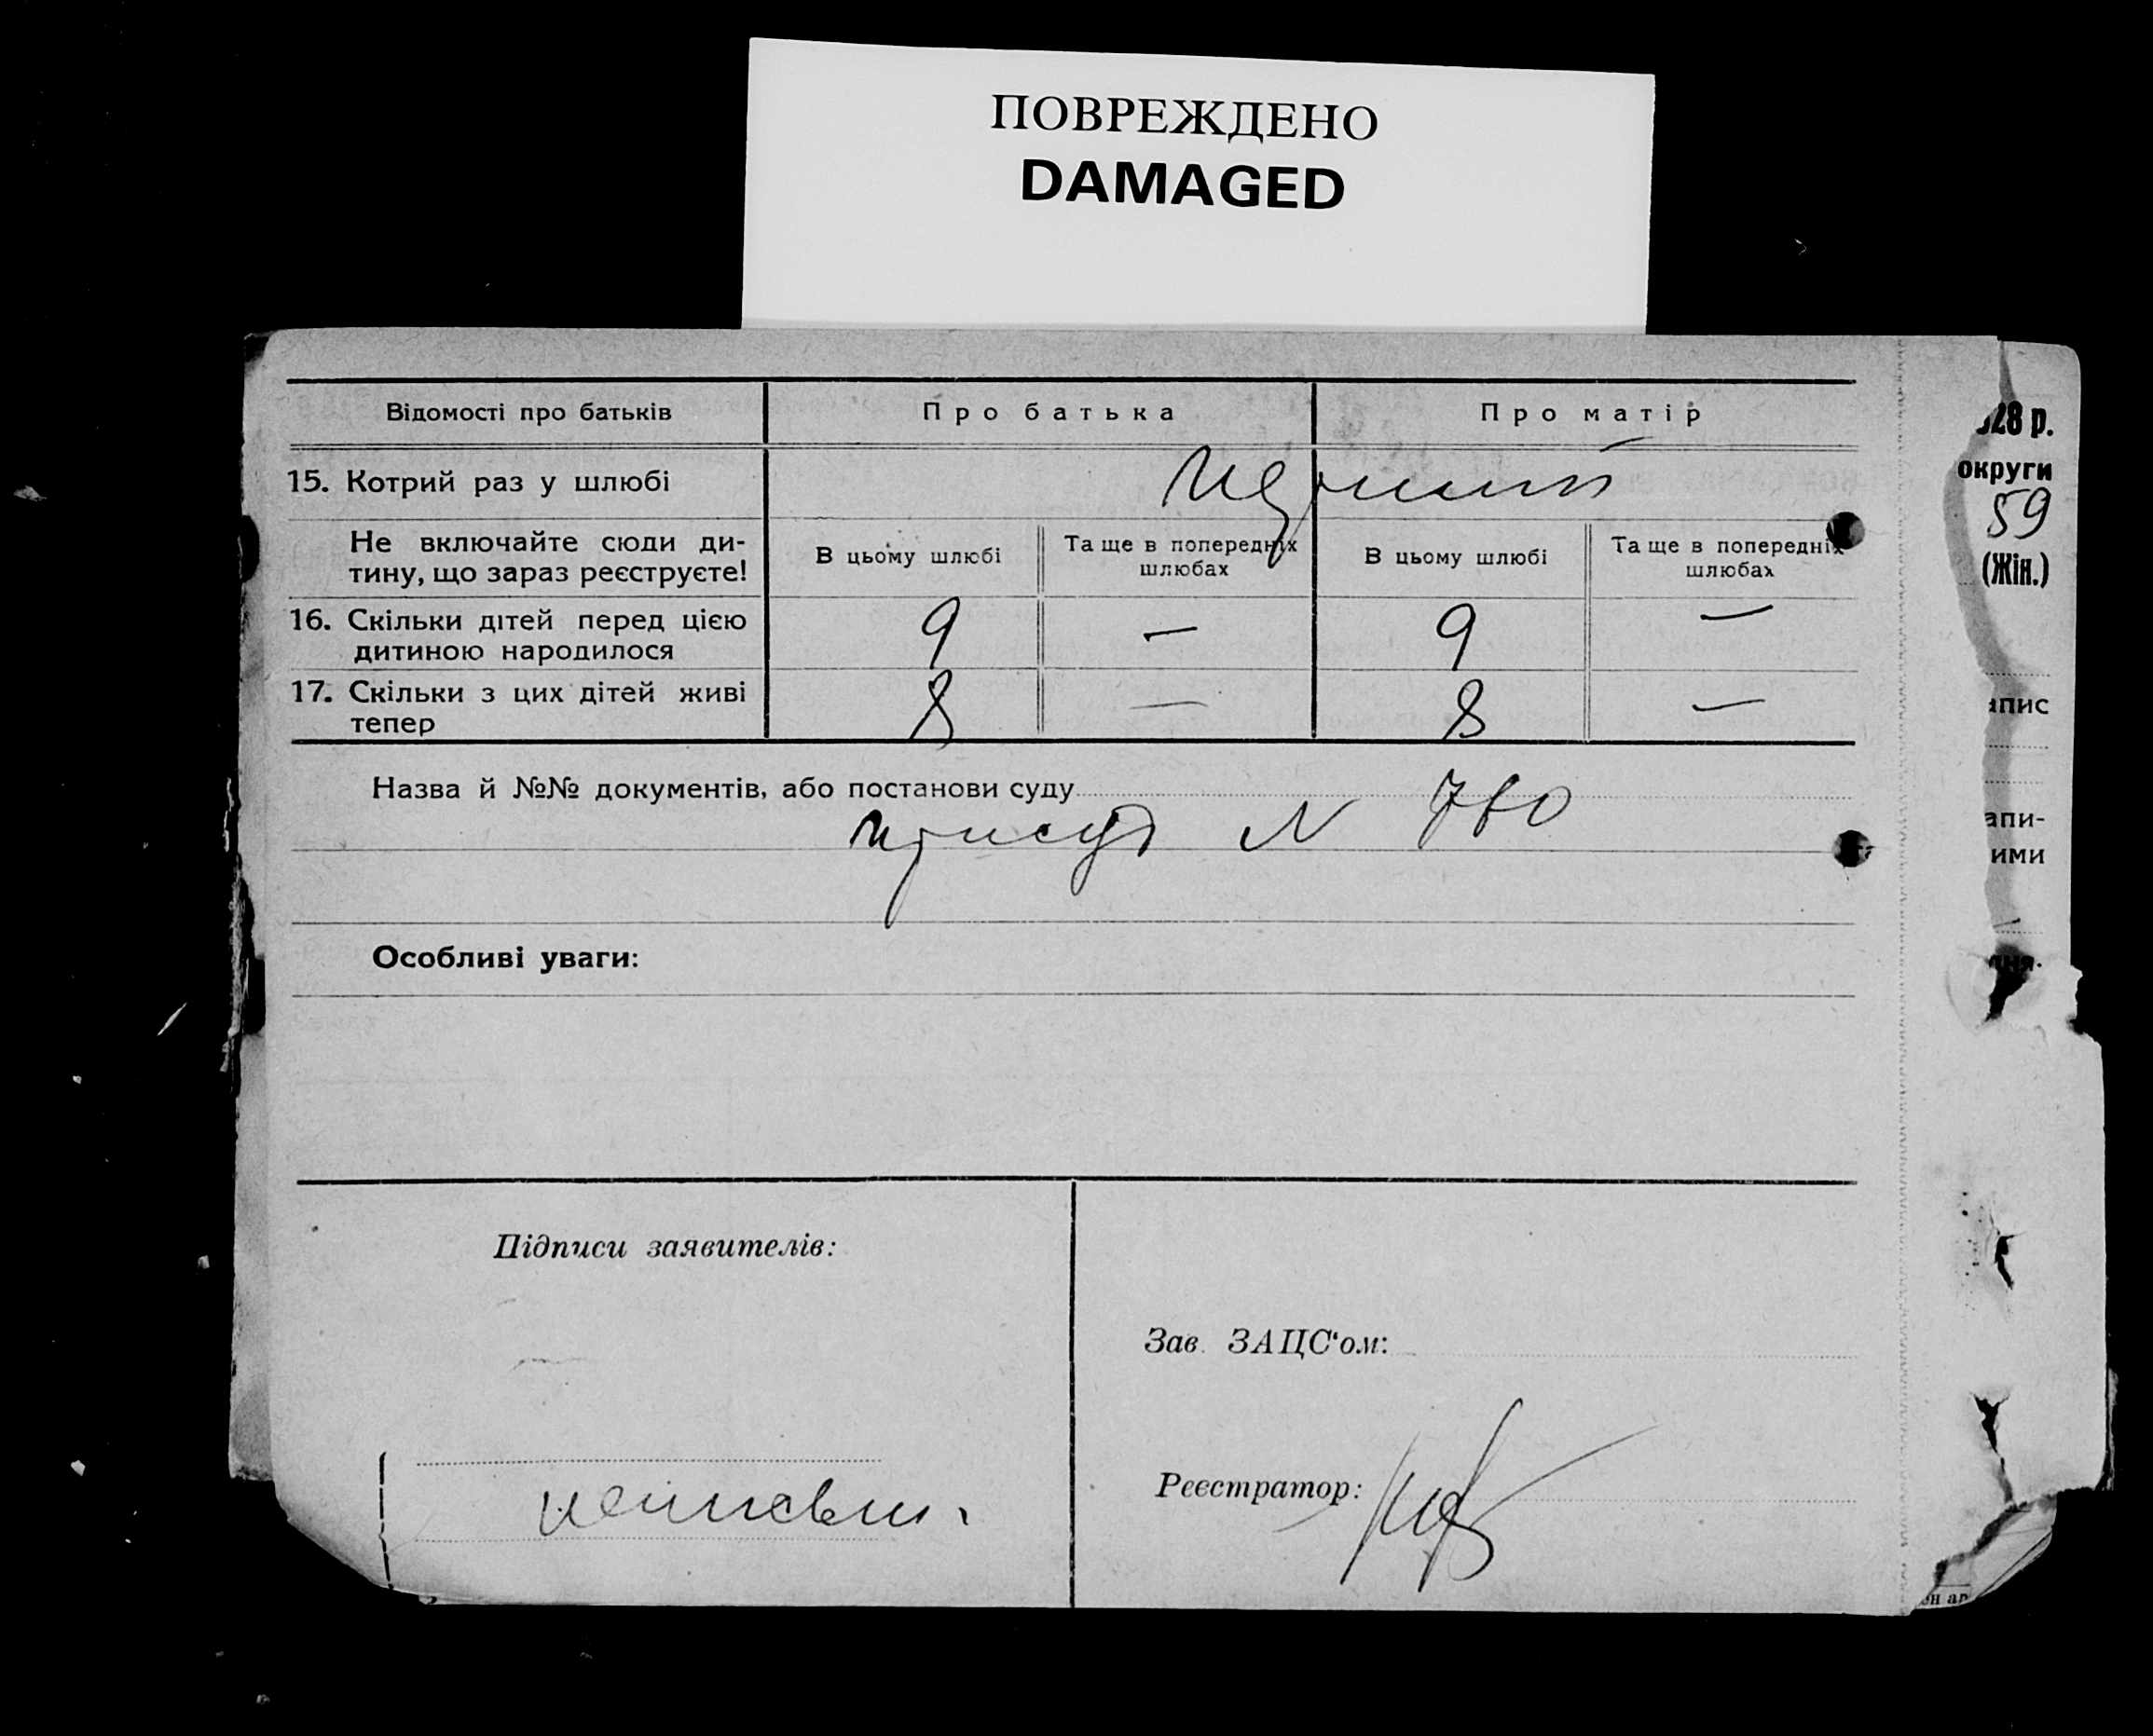 ПОВРЕЖДЕНО
DAMAGED
Відомості про батьків
Про батька
Про матір
15. Котрий раз у шлюбі
перший
Не включайте сюди ди-
тину, що зараз реєструєте!
В цьому шлюбі
Та ще в попередніх
шлюбах
В цьому шлюбі
Та ще в попередніх
шлюбах
16. Скільки дітей перед цією
дитиною народилося
9 — 9 —
17. Скільки з цих дітей живі
тепер
8 — 8 —
Назва й №№ документів, або постанови суду
присуд N 760
Особливі уваги:
Підписи заявителів:
Зав. ЗАЦС'ом:
Реєстратор:
28 р.
округи
59
(Жін.)
апис
апи-
ими